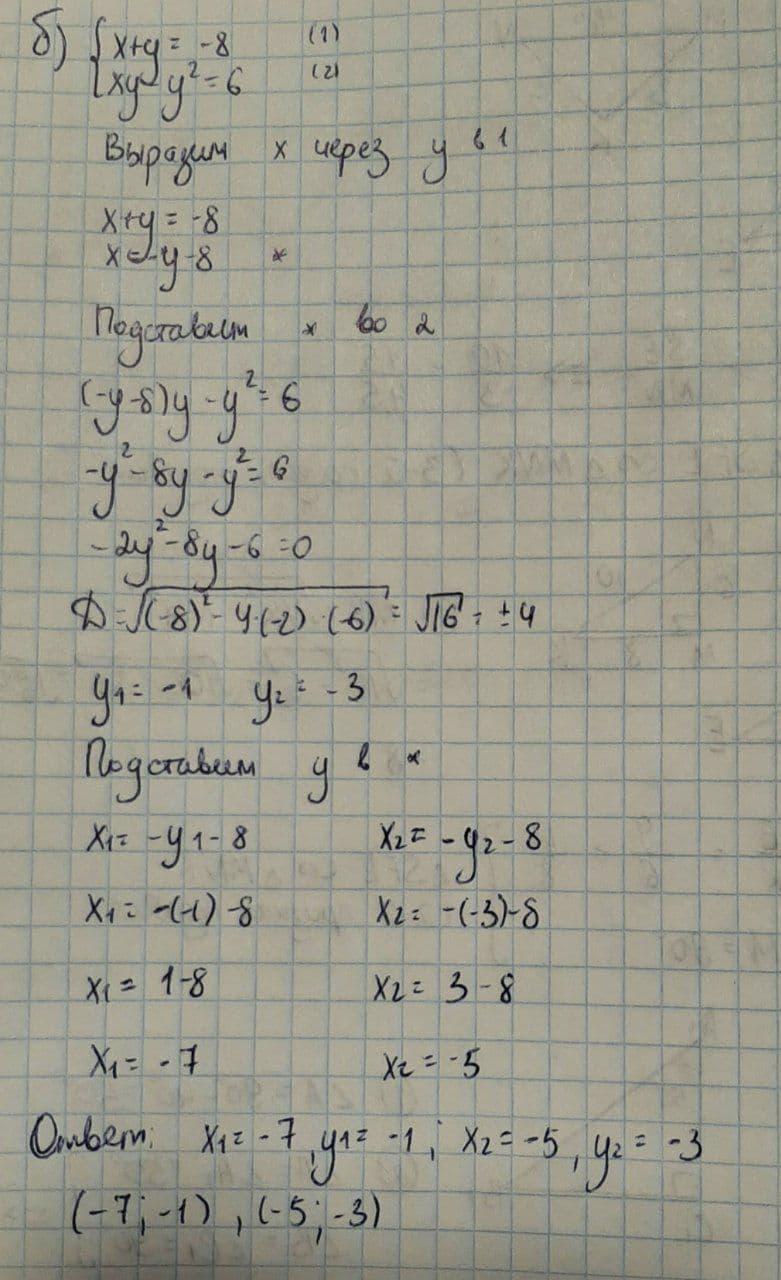 б) { x+y = -8 (1)
xy - y² = 6 (2)
Выразим x через y в 1
x+y = -8
x = -y-8 *
Подставим * во 2
(-y-8)y - y² = 6
-y² - 8y - y² = 6
-2y² - 8y - 6 = 0
D = √(-8)² - 4·(-2)·(-6) = √16 = ±4
y₁ = -1 y₂ = -3
Подставим y в *
x₁ = -y₁ - 8 x₂ = -y₂ - 8
x₁ = -(-1) - 8 x₂ = -(-3) - 8
x₁ = 1-8 x₂ = 3 - 8
x₁ = -7 x₂ = -5
Ответ: x₁ = -7, y₁ = -1; x₂ = -5, y₂ = -3
(-7; -1), (-5; -3)